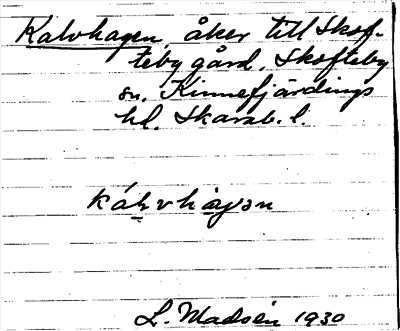 Kalvhagen, åker till Skof-
teby gård, Skofteby
sn, Kinnefjärdings
hd, Skarab. l.
kálvhàgən
L. Madsén 1930